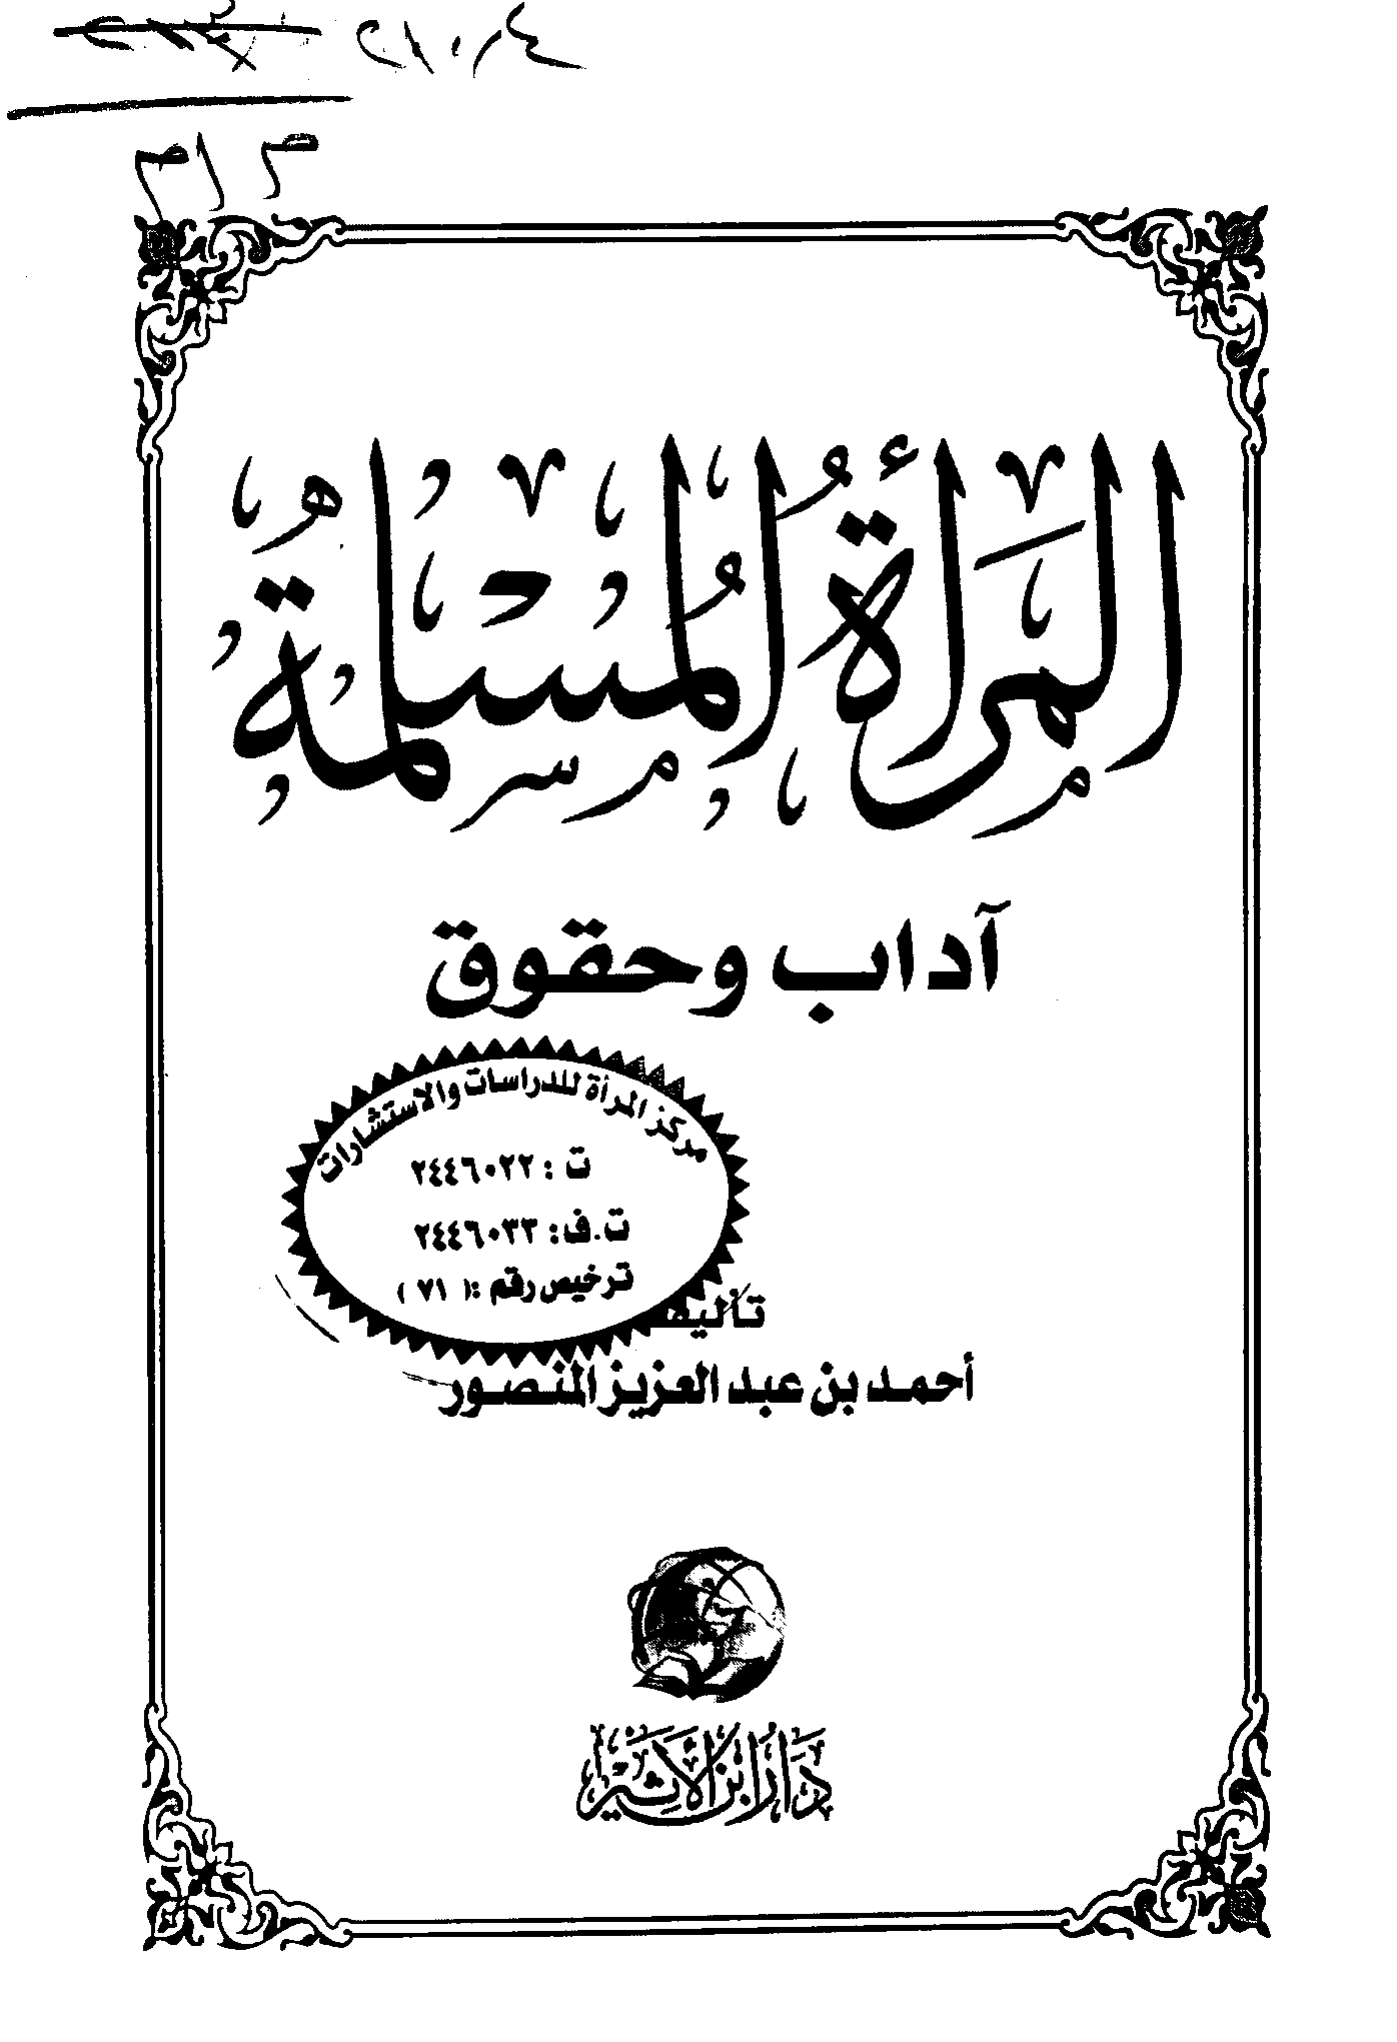 ٢١٠،٤
المرأة المسلمة
آداب وحقوق
مركز المرأة للدراسات والاستشارات
ت : ٢٤٤٦٠٢٢
ت.ف: ٢٤٤٦٠٣٣
ترخيص رقم :( ٧١ )
تأليف
أحمد بن عبد العزيز المنصور
دَارُ ابْنِ الأَثِيرِ